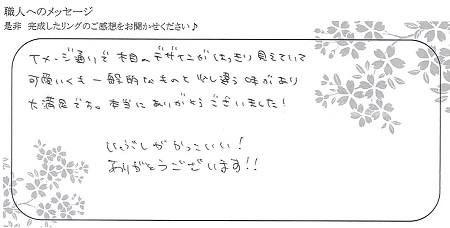 職人へのメッセージ
是非 完成したリングのご感想をお聞かせください♪
イメージ通りで木目のデザインがはっきり見えていて
可愛いくも一般的なものと少し違う味があり
大満足です。本当にありがとうございました!
いぶしがかっこいい!
ありがとうございます!!